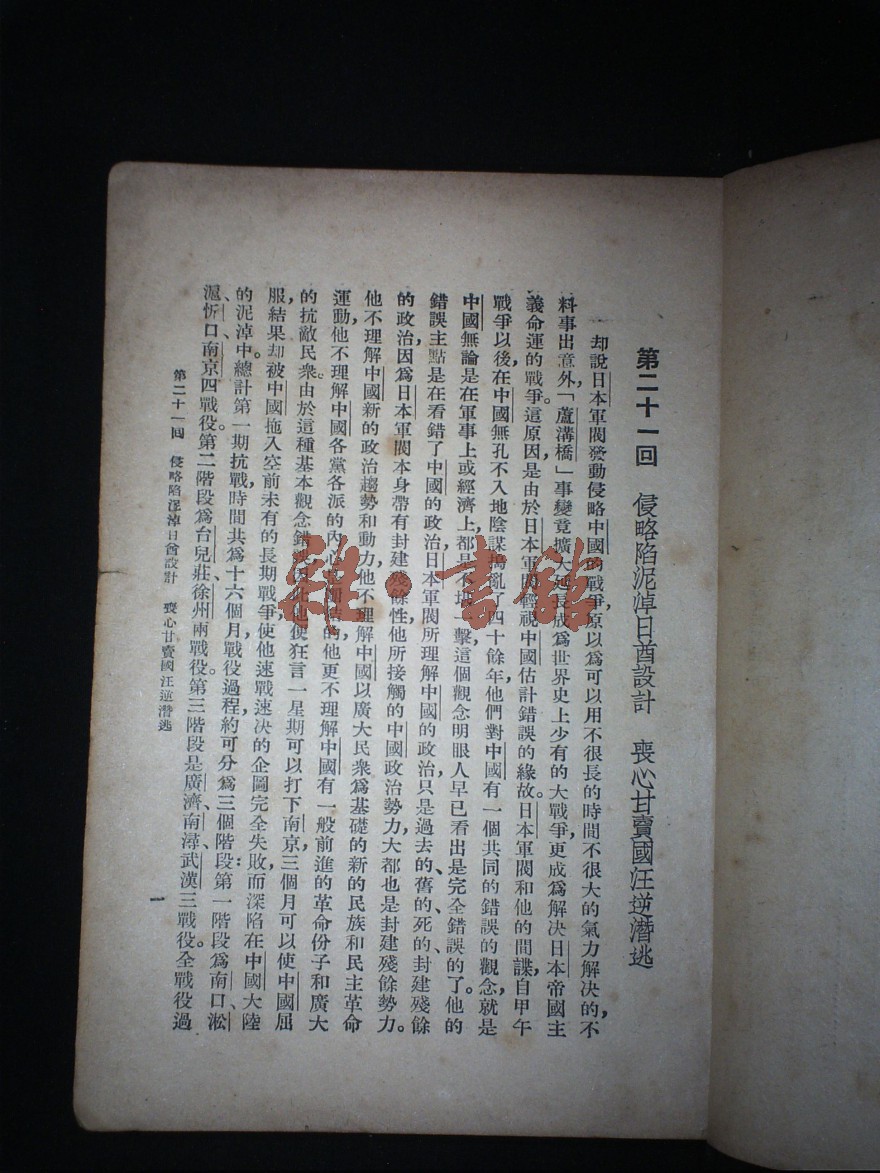 第二十一回　侵略陷泥淖日酋設計　喪心甘賣國汪逆潛逃
却說日本軍閥發動侵略中國的戰爭，原以爲可以用不很長的時間不很大的氣力解决的，不
料事出意外，「蘆溝橋」事變竟擴大延長成爲世界史上少有的大戰爭，更成爲解决日本帝國主
義命運的戰爭。這原因是由於日本軍閥輕視中國估計錯誤的緣故。日本軍閥和他的間諜，自甲午
戰爭以後，在中國無孔不入地陰謀搗亂了四十餘年，他們對中國有一個共同的錯誤的觀念，就是
中國無論是在軍事上或經濟上，都是不堪一擊，這個觀念明眼人早已看出是完全錯誤的了。他的
錯誤主點是在看錯了中國的政治，日本軍閥所理解中國的政治，只是過去的、舊的、死的、封建殘餘
的政治，因爲日本軍閥本身帶有封建殘餘性，他所接觸的中國政治勢力，大都也是封建殘餘勢力。
他不理解中國新的政治趨勢和動力，他不理解中國以廣大民衆爲基礎的新的民族和民主革命
運動，他不理解中國各黨各派的內的，他更不理解中國有一般前進的革命份子和廣大
的抗敵民衆。由於這種基本觀念錯誤，因此他便狂言一星期可以打下南京，三個月可以使中國屈
服，結果却被中國拖入空前未有的長期戰爭，使他速戰速决的企圖完全失敗，而深陷在中國大陸
的泥淖中。總計第一期抗戰時間共爲十六個月，戰役過程約可分爲三個階段：第一階段爲南口、淞
滬、忻口、南京四戰役。第二階段爲台兒莊、徐州兩戰役。第三階段是廣濟、南潯、武漢三戰役。全戰役過
第二十一回　侵略陷泥淖日酋設計　喪心甘賣國汪逆潛逃
一
雜·書館